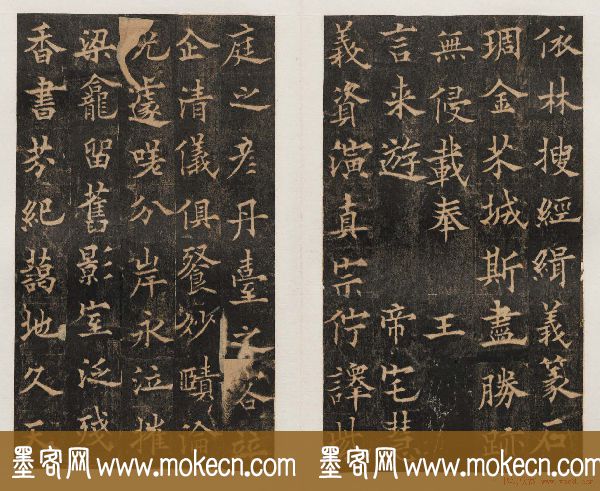 依林搜經緝義篆石
琱金芥城斯盡勝跡
無侵載奉 王
言来遊 帝宅慧
義資演真宗佇譯
庭之彥丹臺之谷
企清儀俱餐妙賾淪
光遽嗟分岸永泣摧
梁龕留舊影室泛殘
香書芬紀藹地久天
墨客网 www.mokecn.com
墨客网 www.mokecn.com